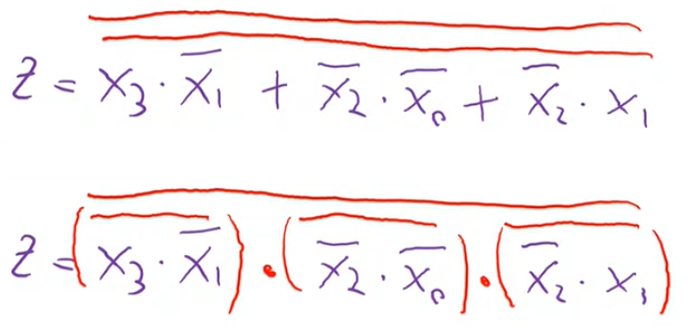 Z = \overline{\overline{X_3 \cdot \overline{X_1} + \overline{X_2} \cdot \overline{X_0} + \overline{X_2} \cdot X_1}}
Z = \overline{(\overline{X_3 \cdot \overline{X_1}}) \cdot (\overline{\overline{X_2} \cdot \overline{X_0}}) \cdot (\overline{\overline{X_2} \cdot X_1})}